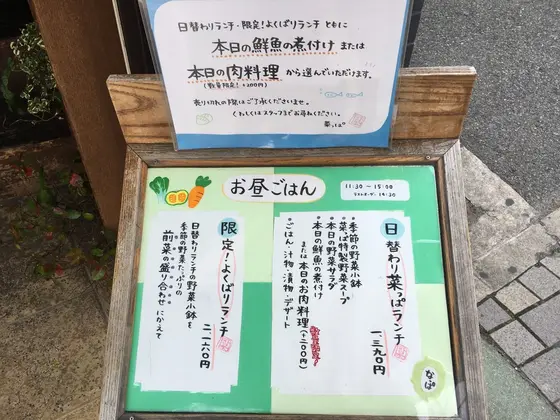 日替わりランチ・限定！よくばりランチ ともに
本日の鮮魚の煮付け または
本日の肉料理 から選んでいただけます。
(数量限定！+200円)
売り切れの際はご了承くださいませ。
くわしくはスタッフまでお尋ねください。
菜っぱ
お昼ごはん
11:30-15:00
ラストオーダー 14:30
日替わり菜っぱランチ
一、三九〇円
・季節の野菜小鉢
・菜っぱ特製野菜スープ
・本日の野菜サラダ
・本日の鮮魚の煮付け
または本日のお肉料理(+二〇〇円)
数量限定！
・ごはん・汁物・漬物・デザート
限定！よくばりランチ
二、一六〇円
日替わりランチの野菜小鉢を
季節の野菜たっぷりの
前菜の盛り合わせ にかえて
なっぱ